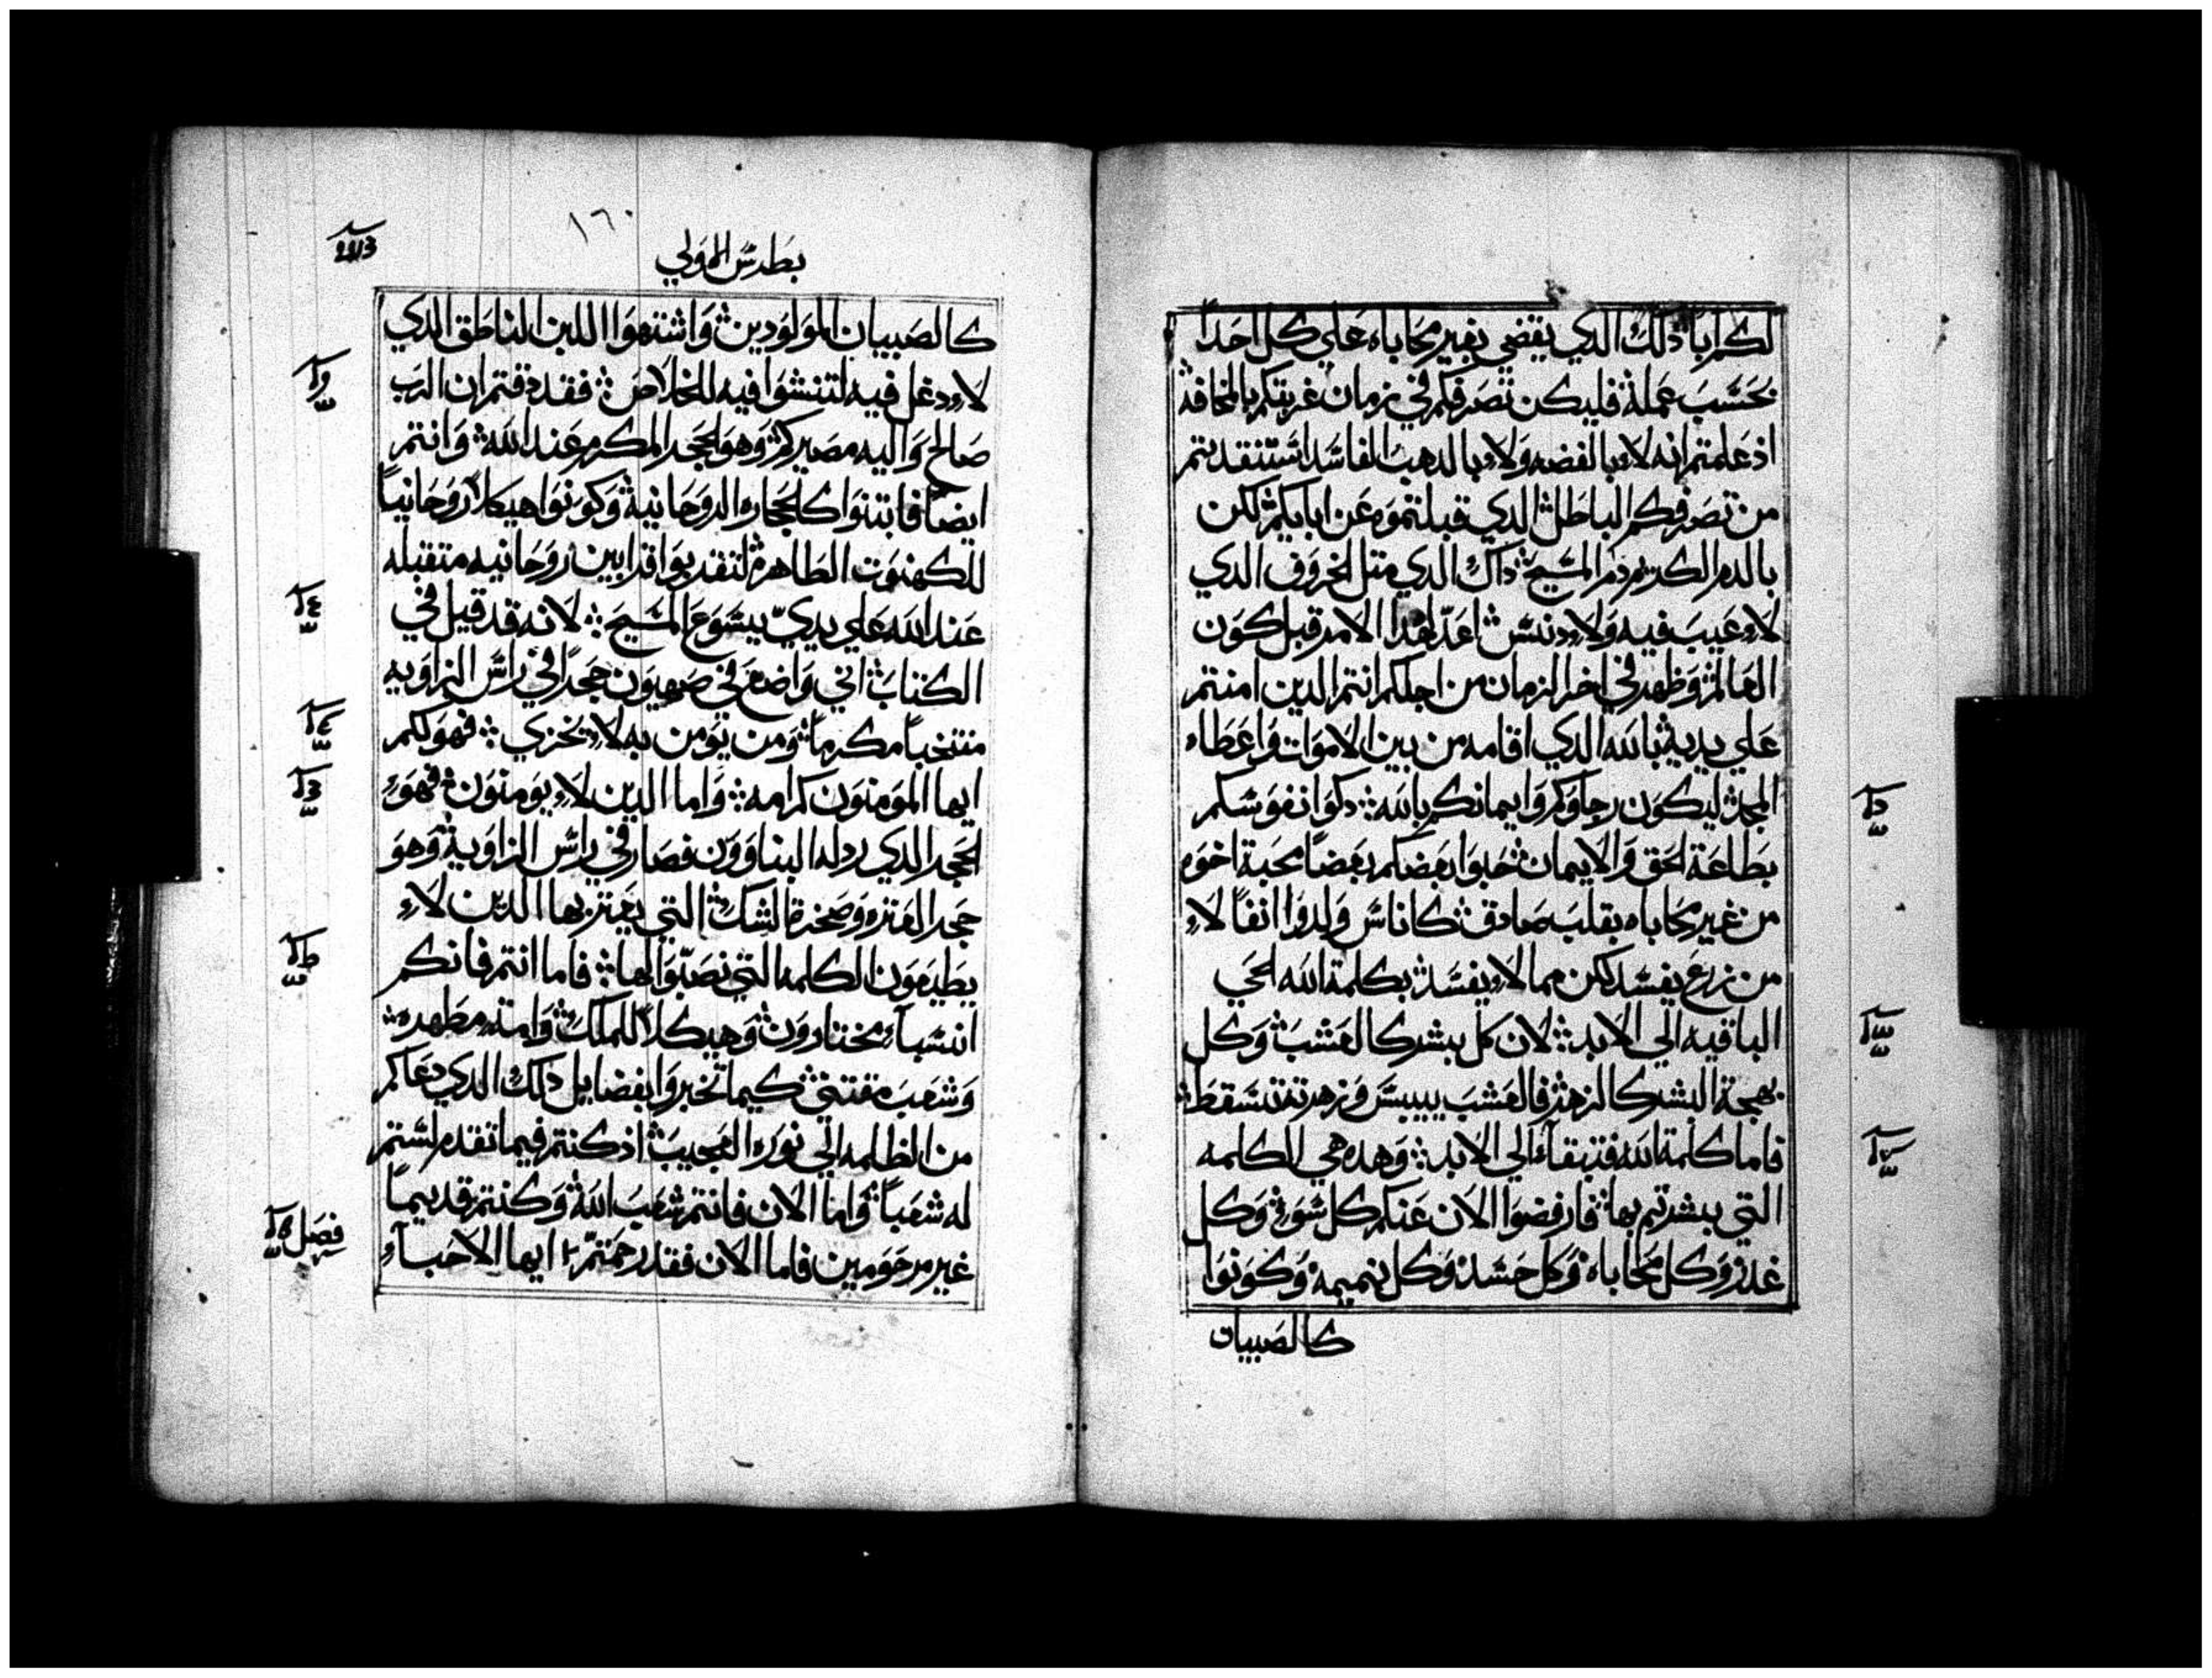 لكم ابا ذلك الدي يقضي بغير محاباه علي كل احدا
بحسب عمله فليكن تصرفكم في زمان غربتكم بالمخافة
اذ علمتم انه لا بالفضه ولا بالدهب الفاسد استنقدتم
من تصرفكم الباطل الدي قبلتموه عن ابايكم لكن
بالدم الكريم دم المسيح داك الدي متل الخروف الدي
لا عيب فيه ولا دنس اعد لهدا الامر قبل كون
العالم وظهر في اخر الزمان من اجلكم انتم الدين امنتم
علي يديه بالله الدي اقامه من بين الاموات واعطاه
المجد ليكون رجاوكم وايمانكم بالله دكوا نفوسكم
بطاعة الحق والايمان حبوا بعضكم بعضا محبة اخوه
من غير محاباه بقلب صادق كاناس ولدوا انفا لا
من زرع يفسد لكن مما لا يفسد بكلمة الله الحي
الباقيه الي الابد لان كل بشر كالعشب وكل
بهجة البشر كالزهر فالعشب ييبس وزهرته تسقط
فاما كلمة الله فتبقاء الي الابد وهده هي الكلمه
التي بشرتم بها فارفضوا الان عنكم كل شور وكل
غدر وكل محاباه وكل حسد وكل نميمه وكونوا
كالصبيان
١٦٠
بطرس الاولي
كالصبيان المولودين واشتهوا اللبن الناطق الدي
لا دغل فيه لتنشوا فيه للخلاص فقد دقتم ان الرب
صالح واليه مصيركم وهو الحجر المكرم عند الله وانتم
ايضا فابتنوا كالحجاره الروحانيه وكونوا هيكلا روحانيا
للكهنوت الطاهرة لتقدبوا قرابين روحانيه متقبله
عند الله علي يدي يسوع المسيح لانه قد قيل في
الكتاب اني واضع في صهيون حجرا في راس الزاويه
منتخبا مكرما ومن يومن به لا يخزي فهو لكم
ايها المومنون كرامه واما الدين لا يومنون فهو
الحجر الدي ردله البناوون فصار في راس الزاوية وهو
حجر العتره وصخرة الشك التي يعتر بها الدين لا
يطيعون الكلمه التي نصبوا لها فاما انتم فانكم
انسباء مختارون وهيكلا للملك وامة مطهره
وشعب مقتني كيما تخبروا بفضايل دلك الدي دعاكم
من الظلمه الي نوره العجيب اذ كنتم فيما تقدم لستم
له شعبا واما الان فانتم شعب الله وكنتم قديما
غير مرحومين فاما الان فقد رحمتم ايها الاحباء
فصل